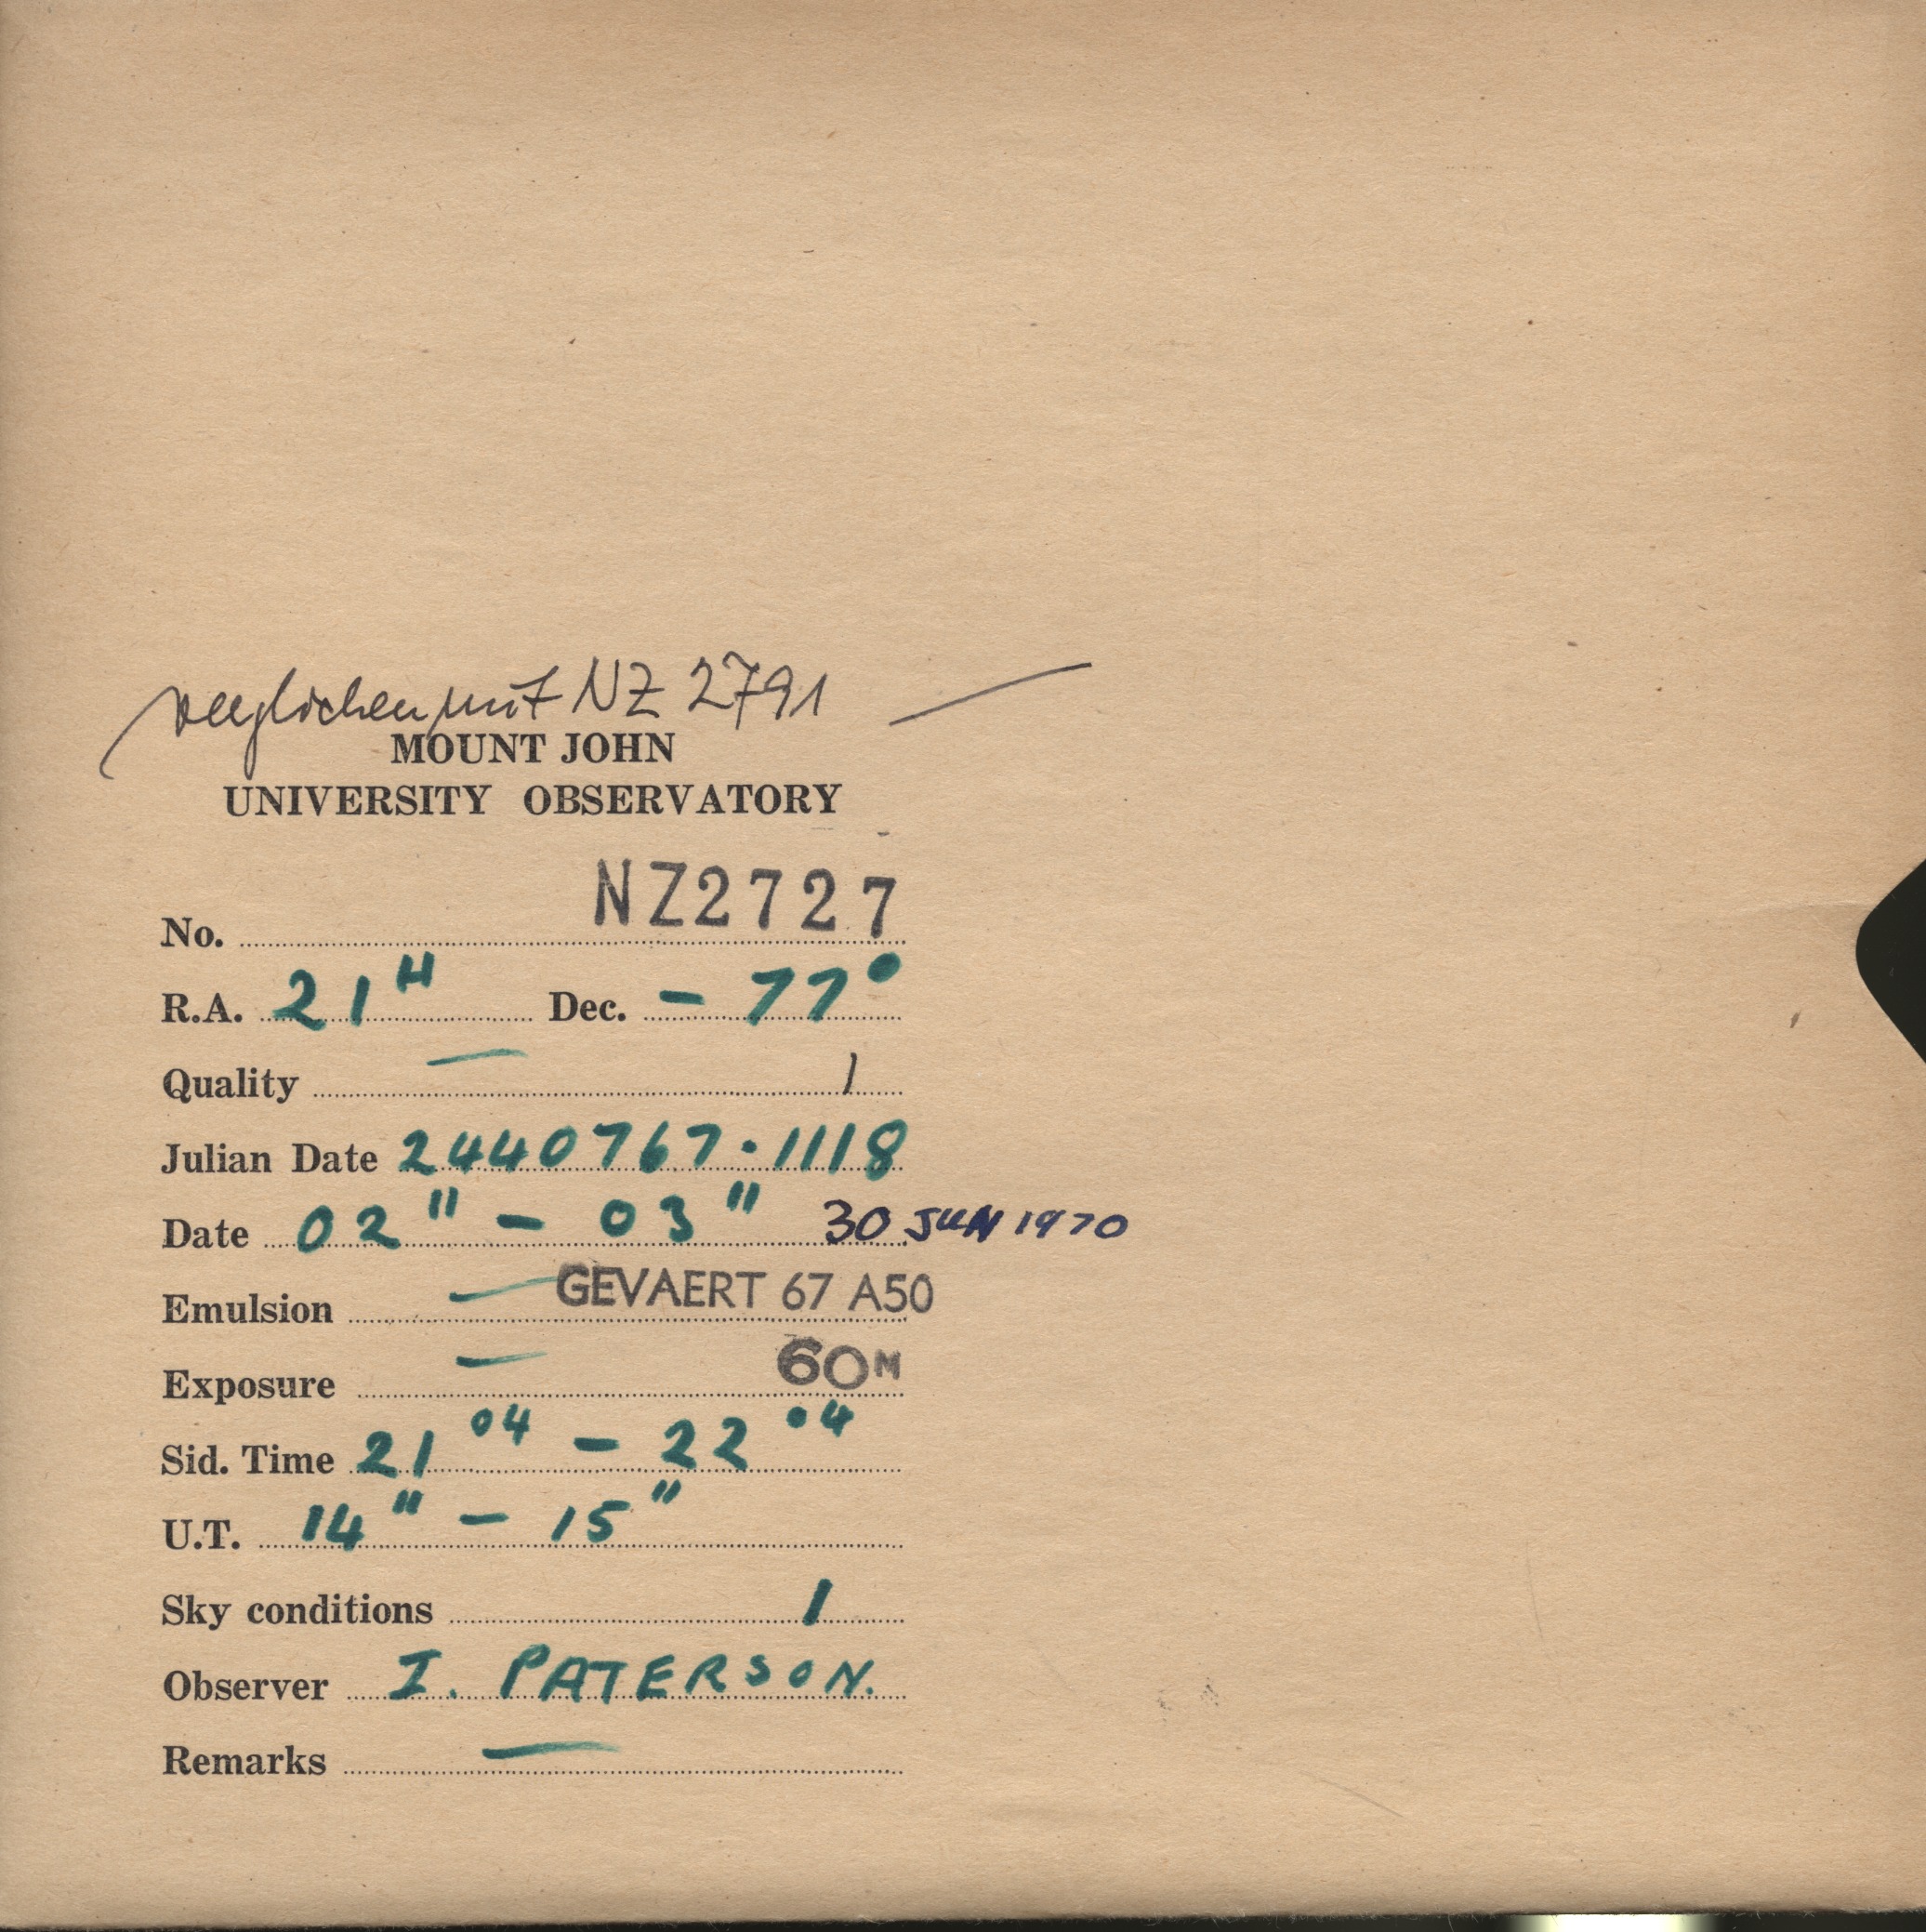 verglichen mit NZ 2791 —
MOUNT JOHN
UNIVERSITY OBSERVATORY
No. NZ2727
R.A. 21ᴴ Dec. - 77°
Quality — 1
Julian Date 2440767.1118
Date 02" - 03" 30 JUN 1970
Emulsion — GEVAERT 67 A50
Exposure — 60ᴹ
Sid. Time 21⁰⁴ - 22⁰⁴
U.T. 14" - 15"
Sky conditions 1
Observer I. PATERSON.
Remarks —